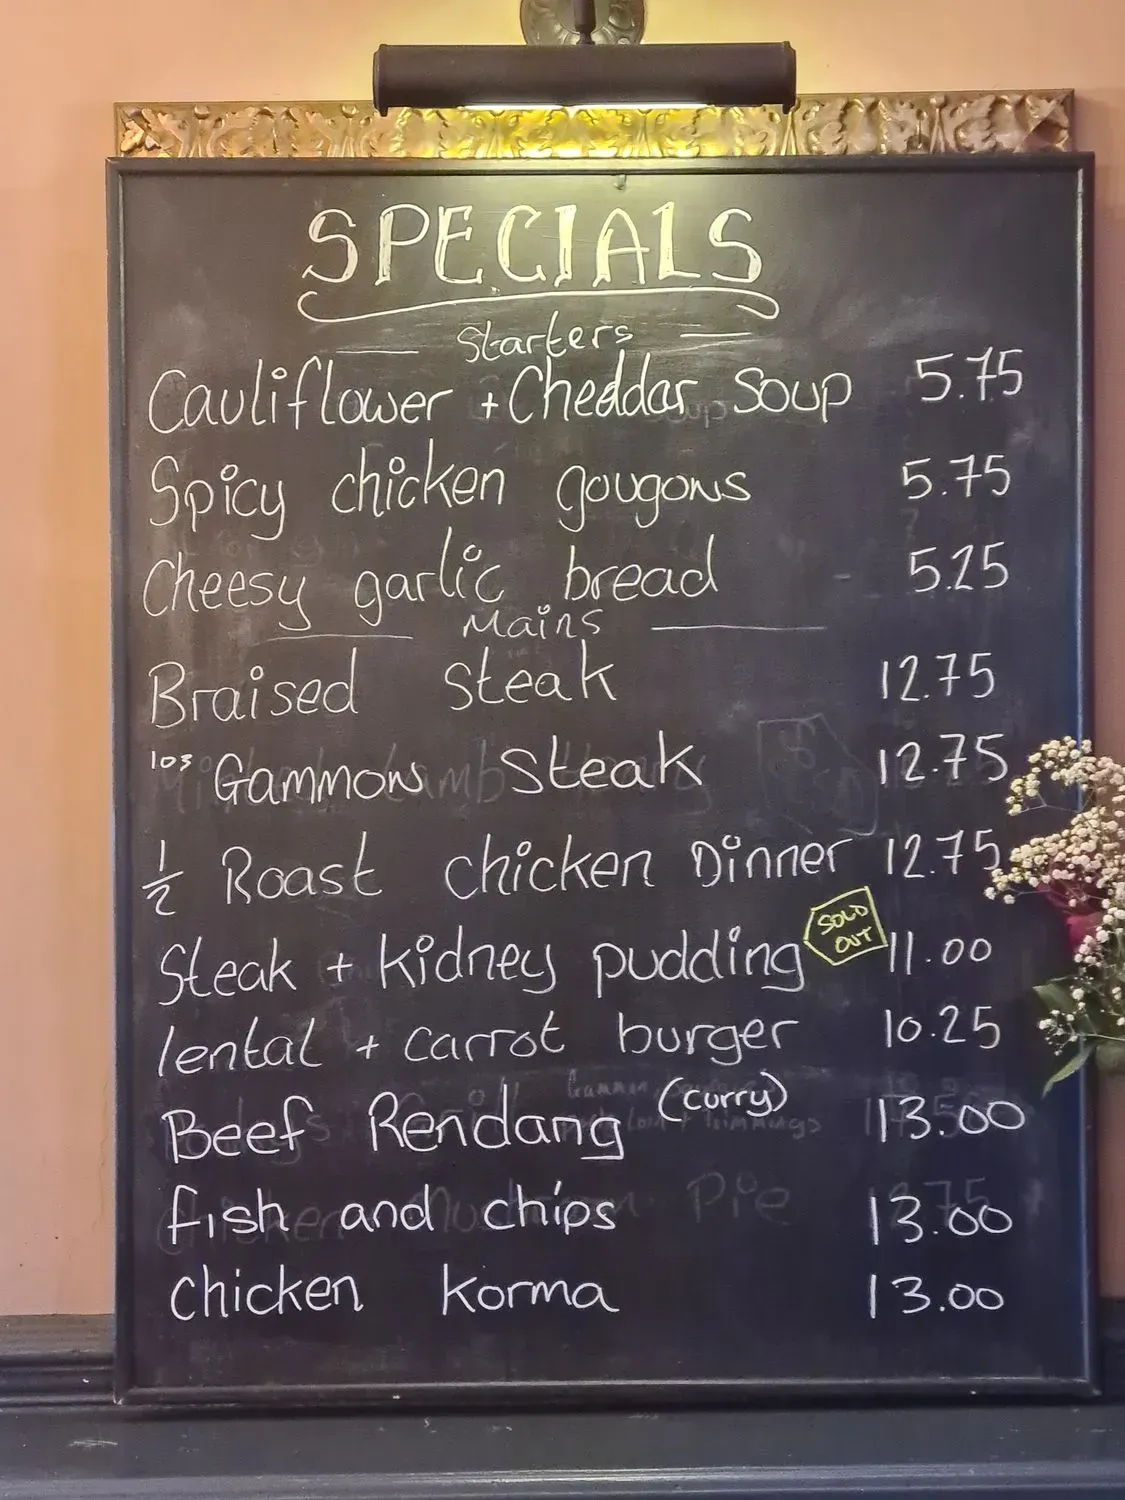 SPECIALS
Starters
Cauliflower + Cheddar Soup 5.75
Spicy chicken gougons 5.75
Cheesy garlic bread 5.25
Mains
Braised Steak 12.75
10oz Gammon Steak 12.75
1/2 Roast chicken Dinner 12.75
Steak + kidney pudding SOLD OUT 11.00
lental + carrot burger 10.25
Beef Rendang (curry) 13.00
fish and chips 13.00
chicken korma 13.00